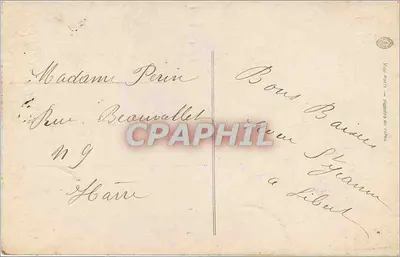 Madame Périn
Rue Beauvallet
n 9
Havre
Bons Baisers
St Jeanne
a Libert
CPAPHIL